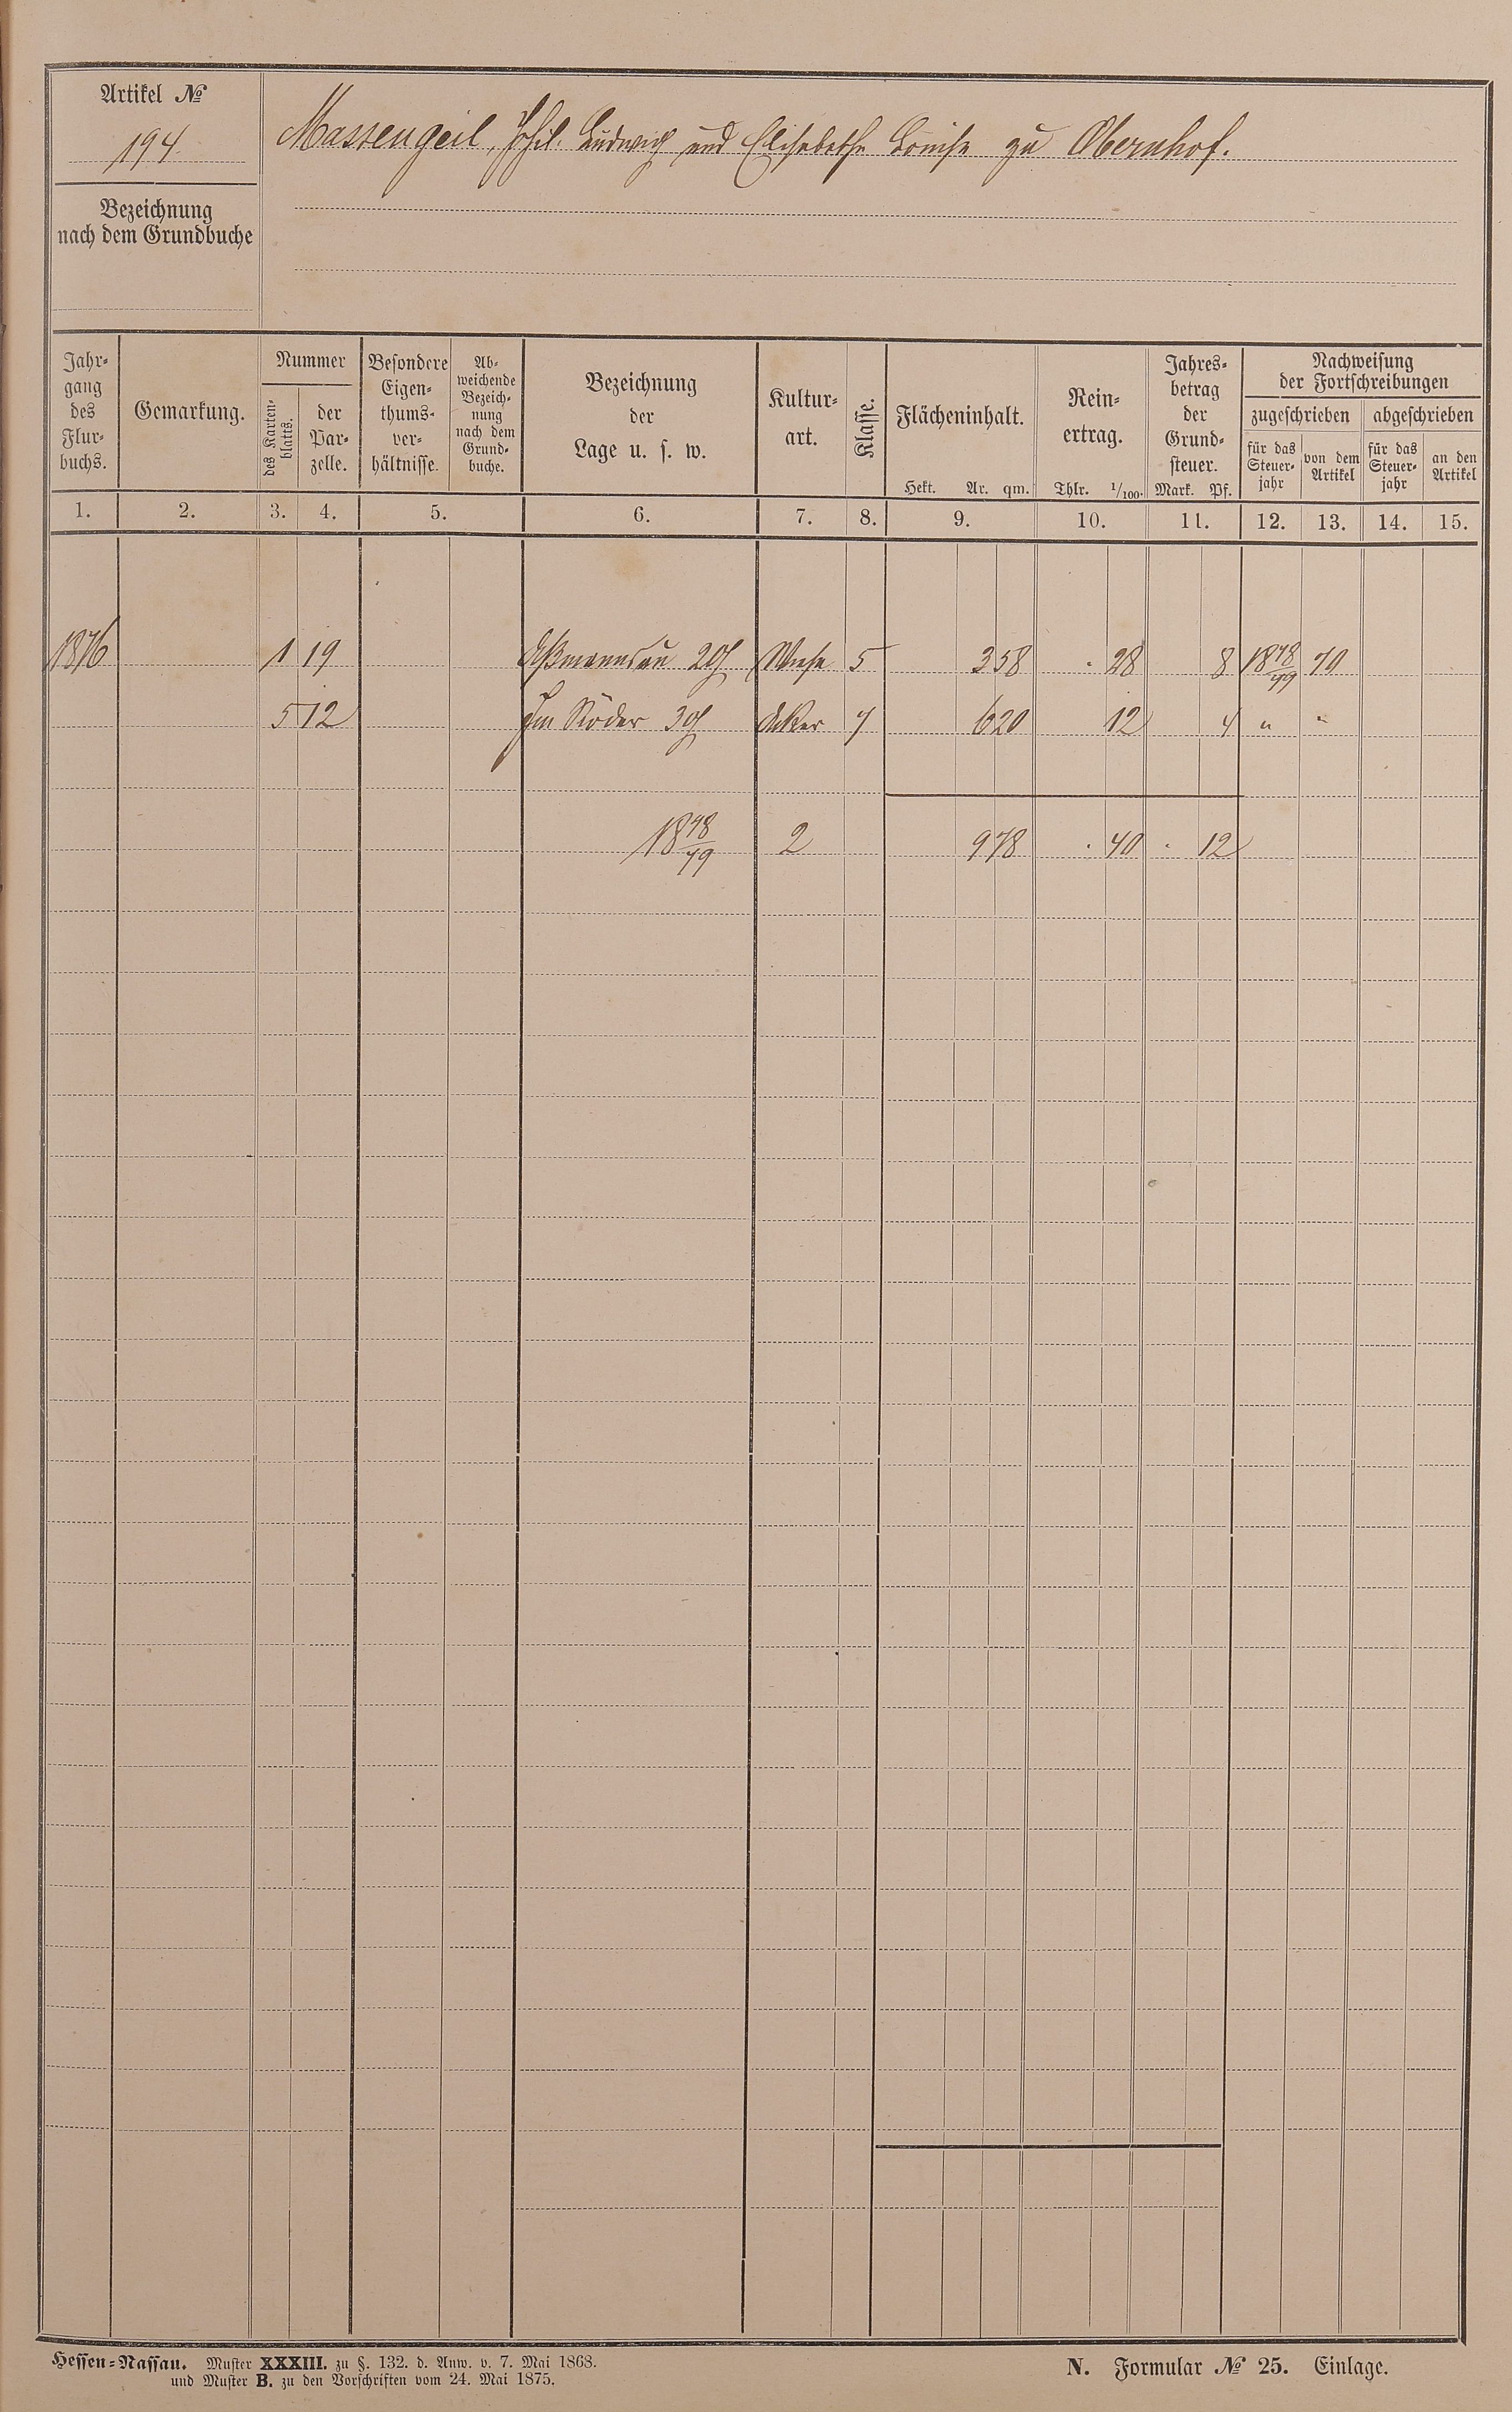 Artikel №
194.
Massengeil, Phil. Ludwig und Elisabethe Louise zu Obernhof.
Bezeichnung
nach dem Grundbuche
Jahr-
gang
des
Flur-
buchs.
Gemarkung.
Nummer
des Karten-
blatts.
der
Par-
zelle.
Besondere
Eigen-
thums-
ver-
hältnisse.
Ab-
weichende
Bezeich-
nung
nach dem
Grund-
buche.
Bezeichnung
der
Lage u. s. w.
Kultur-
art.
Klasse.
Flächeninhalt.
Hekt. Ar. qm.
Rein-
ertrag.
Thlr. 1/100.
Jahres-
betrag
der
Grund-
steuer.
Mark. Pf.
Nachweisung
der Fortschreibungen
zugeschrieben abgeschrieben
für das
Steuer-
jahr
von dem
Artikel
für das
Steuer-
jahr
an den
Artikel
1. 2. 3. 4. 5. 6. 7. 8. 9. 10. 11. 12. 13. 14. 15.
1876 1 19 2 Wiese 5 3 58 . 28 8 1878/79 70
5 12 Im Röder 3 Acker 7 6 20 12 4 " "
1878/79 2 9 78 . 40 . 12
Hessen-Nassau. Muster XXXIII. zu §. 132. d. Anw. v. 7. Mai 1868.
und Muster B. zu den Vorschriften vom 24. Mai 1875.
N. Formular № 25. Einlage.